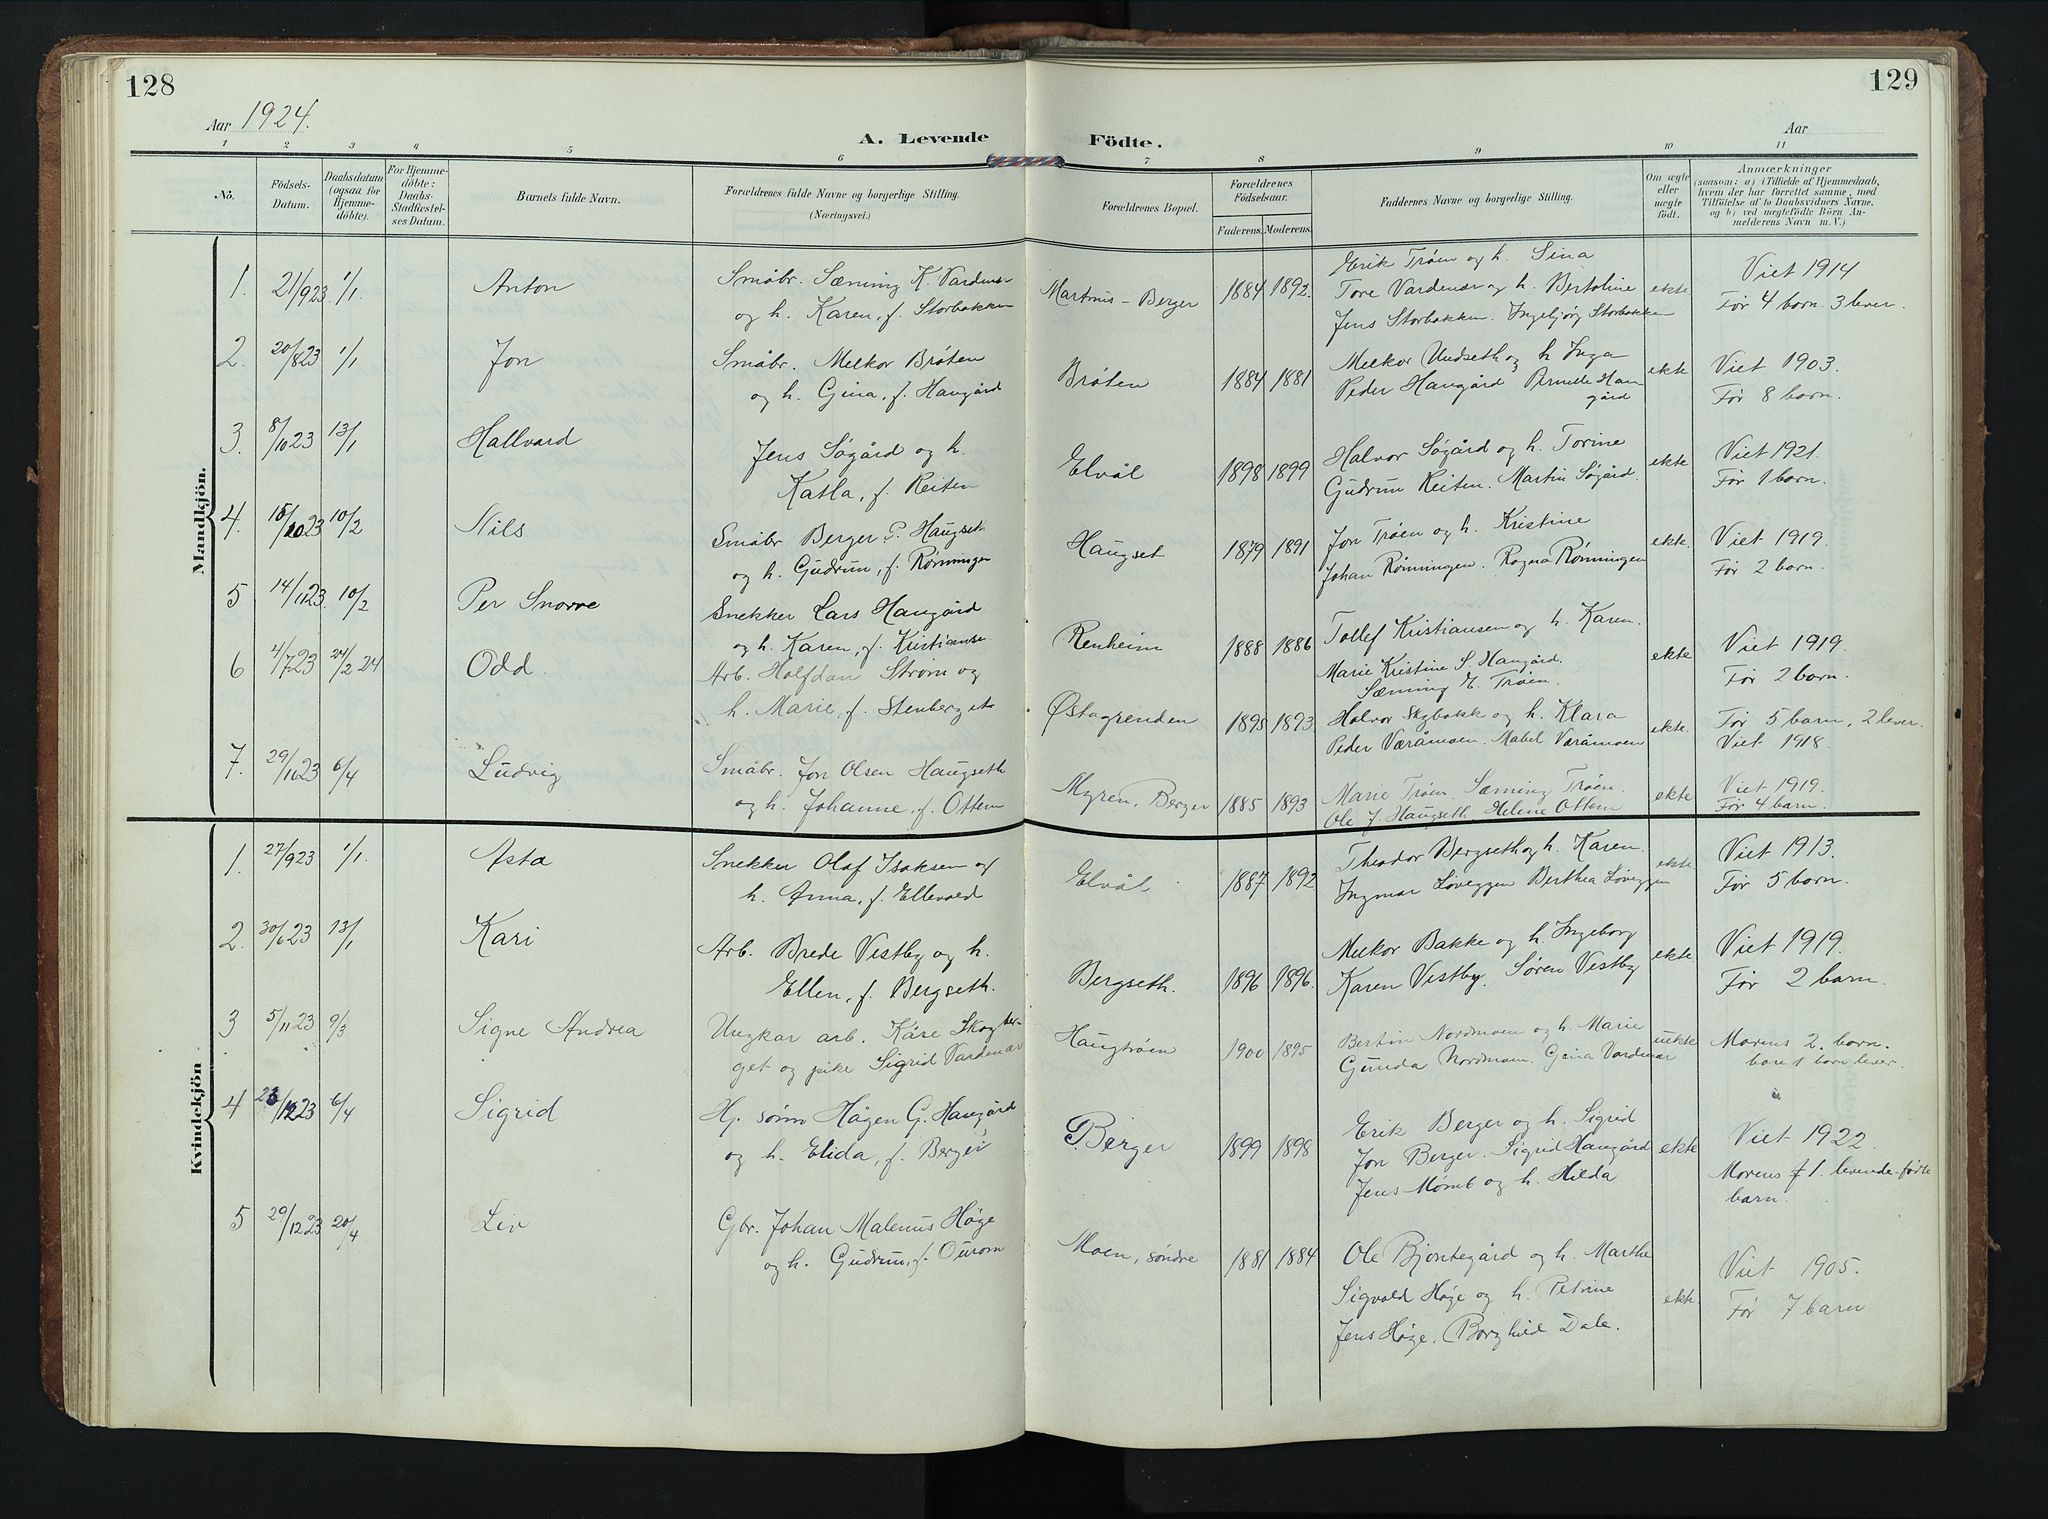 128
129
Aar 1924.
Aar
A. Levende
Födte.
1 2 3 4 5 6 7 8 9 10 11
No.
Födsels-
Datum.
Daabsdatum
(ogsaa for
Hjemme-
döbte).
For Hjemme-
döbte:
Daabs-
Stadfæstel-
ses Datum.
Barnets fulde Navn.
Forældrenes fulde Navne og borgerlige Stilling.
(Næringsvei.)
Forældrenes Bopæl.
Forældrenes
Födselsaar.
Faderens. Moderens.
Faddernes Navne og borgerlige Stilling.
Om ægte
eller
uægte
födt.
Anmærkninger
(saasom: a) i Tilfælde af Hjemmedaab,
hvem der har forrettet samme, med
Tilföielse af to Daabsvidners Navne,
og b) ved uægtefödte Börn An-
melderens Navn m. V.)
Mandkjön.
1. 21/9 23 1/1. Anton
Småbr. Sæming K. Vardenær
og h. Karen, f. Storbakken
Martinus-Berger 1884 1892.
Erik Trøen og h. Sina
Tore Vardenær og h. Bertoline
Jens Storbakken. Ingebjørg Storbakken
ekte
Viet 1914
Før 4 barn. 3 lever.
2. 20/8 23 1/1 Jon
Småbr. Melkor Brøten
og h. Gina, f. Haugård
Brøten 1884 1881
Melkor Undseth og h Inga
Peder Haugård Pernille Hau
gård
ekte
Viet 1903.
Før 8 barn.
3. 8/10 23 13/1 Hallvard
Jens Søgård og h.
Katla, f. Reiten
Elvål 1898 1899
Halvor Søgård og h. Torine
Gudrun Reiten. Martin Søgård.
ekte
Viet 1921.
Før 1 barn.
4. 15/10 23 10/2 Nils
Småbr Berger P. Haugset
og h. Gudrun, f. Rønningen
Haugset 1879 1891
Jon Trøen og h. Kristine
Johan Rønningen. Ragna Rønningen
ekte.
Viet 1919.
Før 2 barn.
5 14/11 23. 10/2 Per Snorre
Snekker Lars Haugård
og h. Karen, f. Kristianse
Renheim 1888 1886
Tollef Kristiansen og h. Karen.
Marie Kristine S. Haugård.
Sæming E. Trøen.
ekte
Viet 1919.
Før 2 barn.
6 4/7 23 24/2 24 Odd.
Arb. Halfdan Strøm og
h. Marie, f. Stenberget
Østagrenden 1895 1893
Halvor Skybakk og h. Klara
Peder Væråmoen. Mabel Væråmoen
ekte.
Før 5 barn, 2 lever.
Viet 1918.
7. 29/11 23 6/4 Ludvig
Småbr. Jon Olsen Haugseth
og h. Johanne, f. Ottem
Myren, Berger 1885 1893
Marie Trøen Sæming Trøen.
Ole J. Haugseth Helene Ottem
ekte
Viet 1919.
Før 4 barn.
Kvindekjön
1. 27/9 23 1/1. Asta
Snekker Olaf Isaksen og
h. Anna, f. Ellevold
Elvål 1887 1892
Theodor Bergseth og h. Karen.
Ingmar Løveggen Berthea Løveggen
ekte
Viet 1913.
Før 5 barn.
2. 30/6 23 13/1 Kari
Arb. Brede Vestby og h.
Ellen, f. Bergseth.
Bergseth. 1896 1896.
Melkor Bakke og h. Ingeborg
Karen Vestby. Søren Vestby
ekte
Viet 1919.
Før 2 barn.
3 5/11 23 9/3 Signe Andrea
Ungkar arb. Kåre Skogber-
get og pike Sigrid Vardenær
Haugtrøen 1900 1895
Bertin Nordmoen og h. Marie
Gunda Nordmoen. Gina Vardenær
uekte
Morens 2. barn.
bare 1 barn lever.
4 23/12 23 6/4 Sigrid
Hj. sønn Hågen G. Haugård
og h. Elida, f. Berger
Berger 1899 1898
Erik Berger og h. Sigrid
Jon Berger. Sigrid Haugård
Jens Mømb og h. Hilda
ekte
Viet 1922.
Morens 1. levende-fødte
barn.
5 29/12 23 20/4 Liv
Gbr. Johan Malenus Høge
og h. Gudrun, f. Ourom
Moen, søndre 1881 1884
Ole Bjøntegård og h. Marthe
Sigvald Høge og h. Petrine
Jens Høge. Borghild Dale.
ekte
Viet 1905.
Før 7 barn